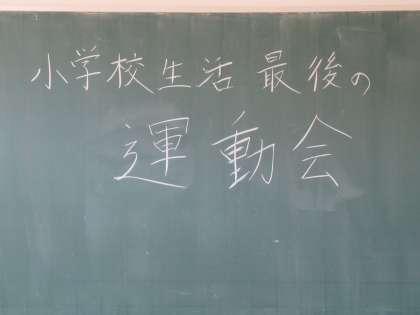 小学校生活 最後の
運動会